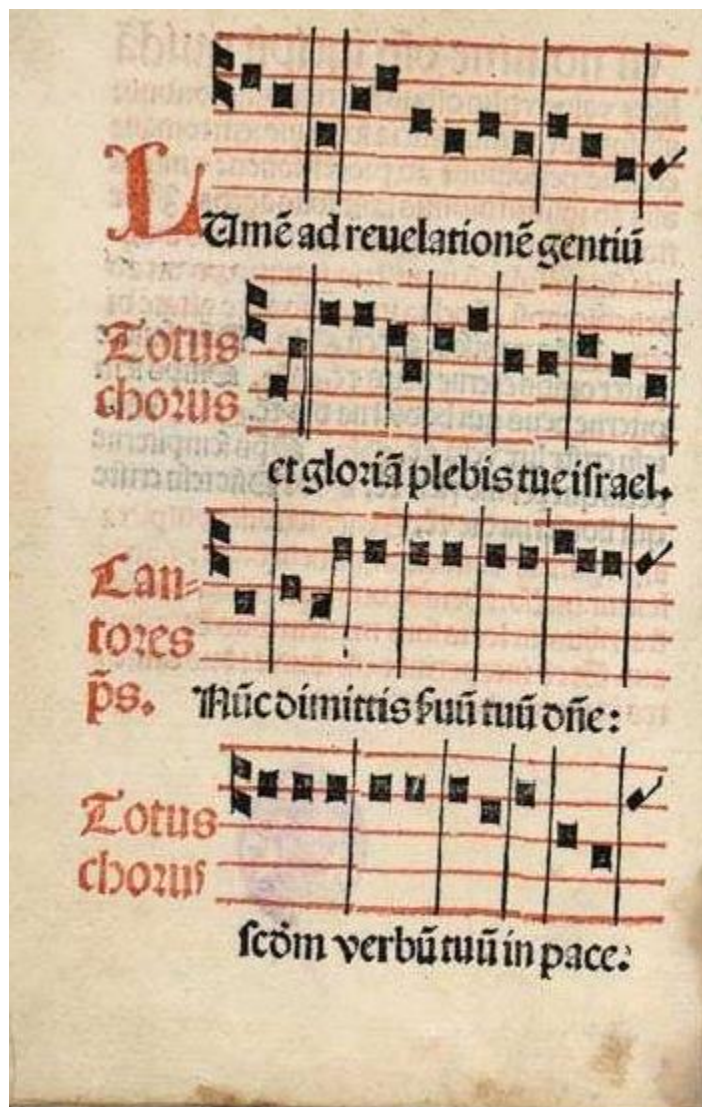 LUmē ad reuelationē gentiū
Totus
chorus
et gloriā plebis tue israel.
Can-
tores
p̄s.
Nūc dimittis ẜuū tuū dn̄e:
Totus
chorus
scd̄m verbū tuū in pace: